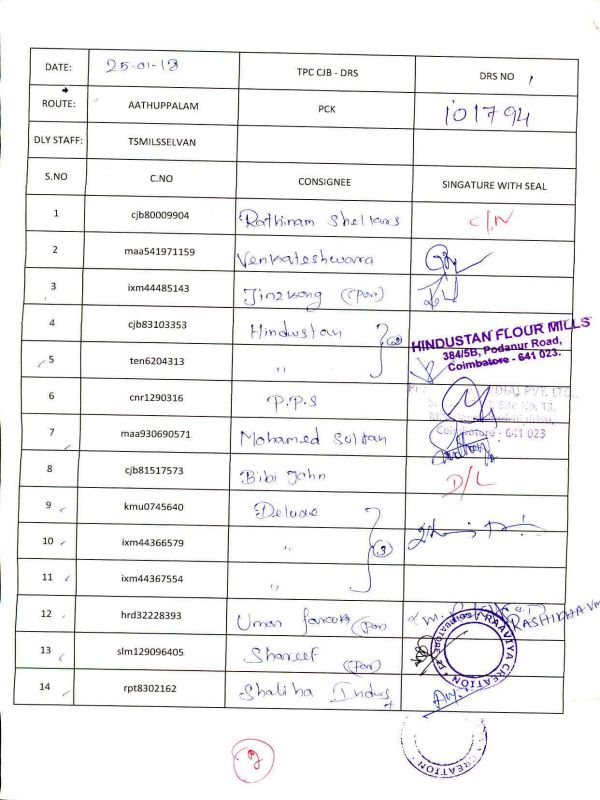 DATE: 25-01-18 TPC CJB - DRS DRS NO
ROUTE: AATHUPPALAM PCK 101794
DLY STAFF: TSMILSSELVAN
S.NO C.NO CONSIGNEE SINGATURE WITH SEAL
1 cjb80009904 Rathinam C/N
2 maa541971159 Venkateshwara
3 ixm44485143 (Por)
4 cjb83103353 Hindustan
HINDUSTAN FLOUR MILLS
384/5B, Podanur Road,
Coimbatore - 641 023.
5 ten6204313 "
6 cnr1290316 P.P.S
PVT. LTD.,
Site No, 13,
7 maa930690571 Mohamed Sultan
Coimbatore - 641 023
8 cjb81517573 Bibi John D/L
9 kmu0745640 Deluxe
10 ixm44366579 " 3
11 ixm44367554 "
12 hrd32228393 Umar Farook (Por)
13 slm129096405 Shareef (Por)
RAAVIYA CREATION
14 rpt8302162 Shaliha Indus
CREATION